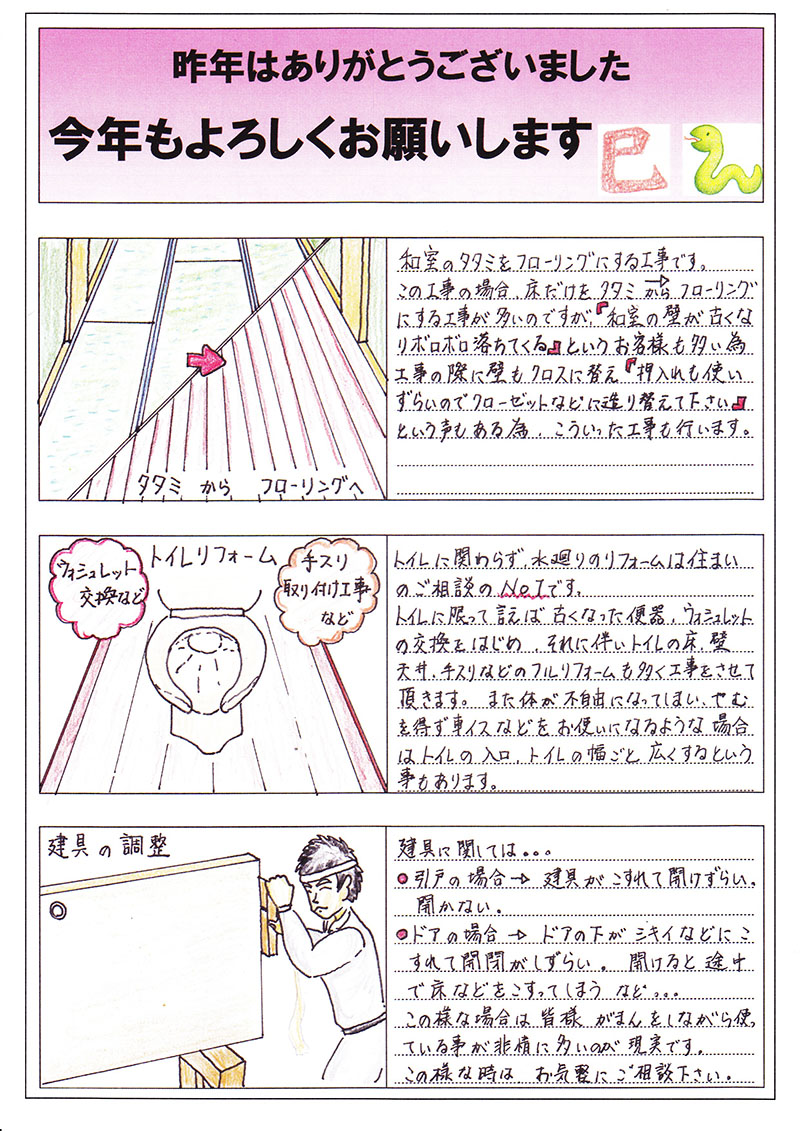 昨年はありがとうございました
今年もよろしくお願いします
巳
和室のタタミをフローリングにする工事です。
この工事の場合、床だけをタタミからフローリング
にする工事が多いのですが『和室の壁が古くな
りボロボロ落ちてくる』というお客様も多い為
工事の際に壁もクロスに替え『押入れも使い
ずらいのでクローゼットなどに造り替えて下さい』
という声もある為、こういった工事も行います。
タタミ から フローリングへ
トイレリフォーム
ウォシュレット
交換など
手スリ
取り付け工事
など
トイレに関わらず、水廻りのリフォームは住まい
のご相談のNo1です。
トイレに限って言えば古くなった便器、ウォシュレット
の交換をはじめ、それに伴いトイレの床、壁
天井、手スリなどのフルリフォームも多く工事をさせて
頂きます。また体が不自由になってしまい、やむ
を得ず車イスなどをお使いになるような場合
はトイレの入口、トイレの幅ごと広くするという
事もあります。
建具の調整
建具に関しては。。。
●引戸の場合→建具がこすれて開けずらい。
開かない。
●ドアの場合→ドアの下がシキイなどにこ
すれて開閉がしずらい。開けると途中
で床などをこすってしまうなど。。。
この様な場合は皆様がまんをしながら使っ
ている事が非情に多いのが現実です。
この様な時はお気軽にご相談下さい。